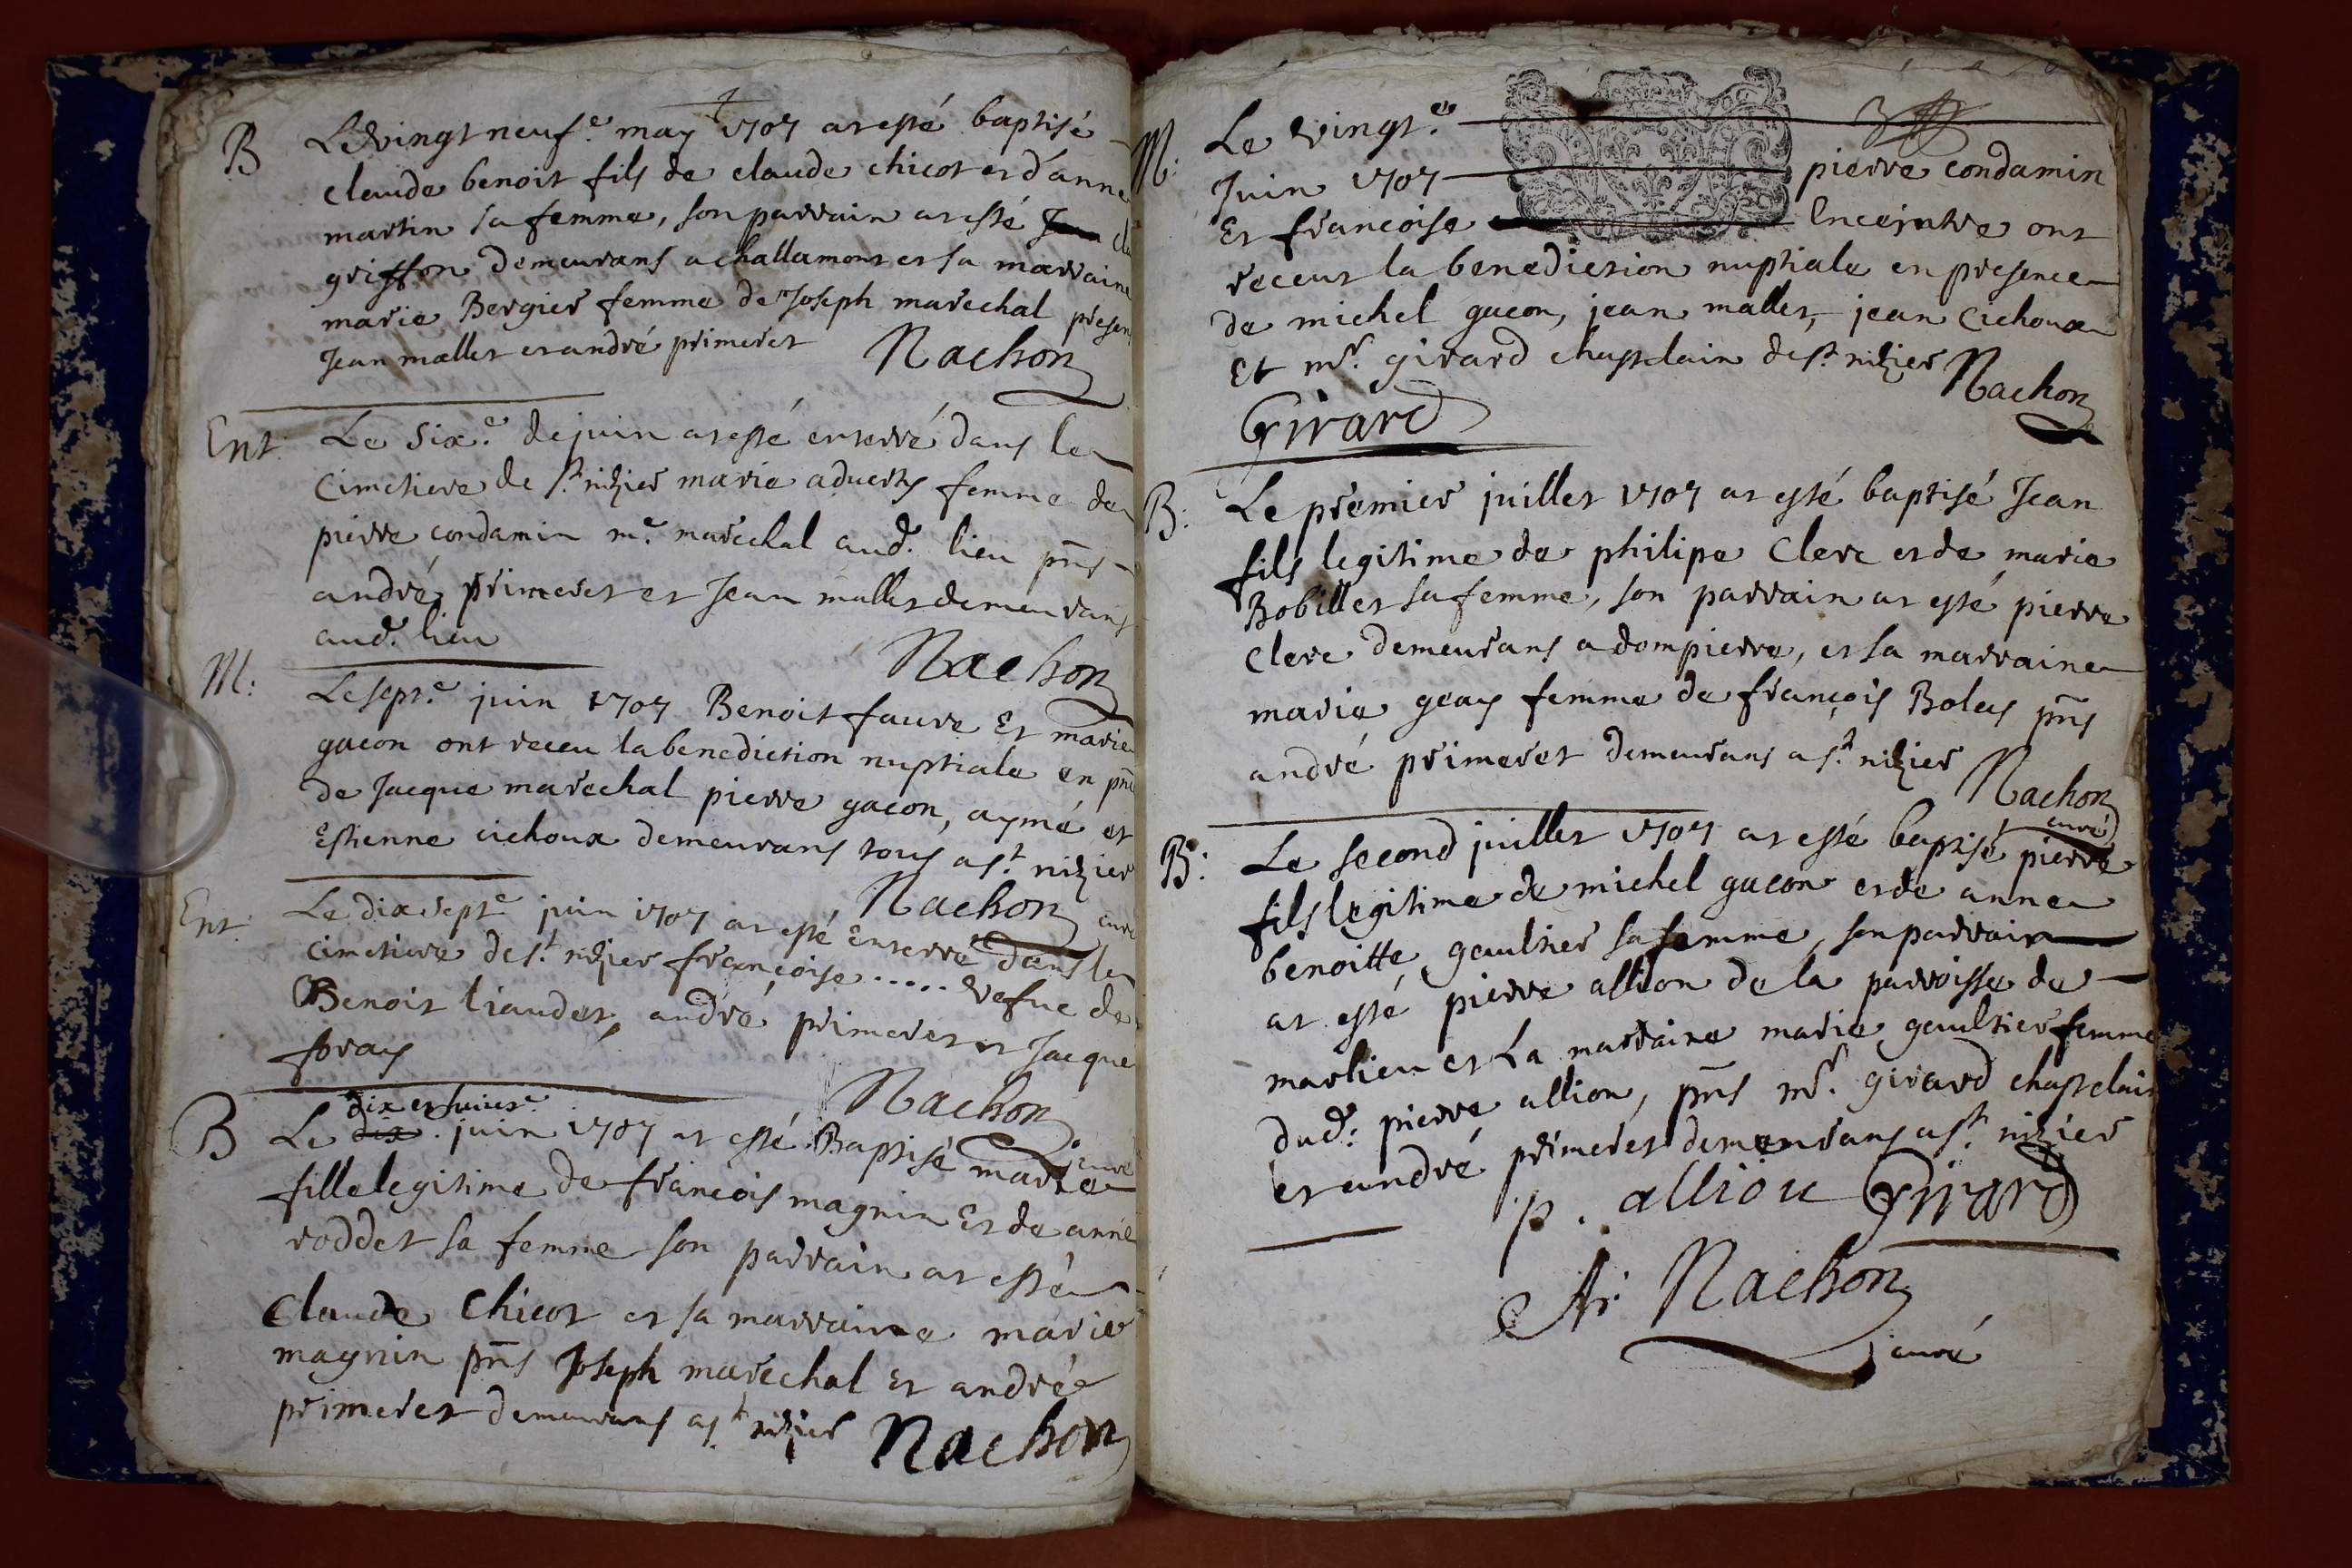 B Le vingt neuf.e may 1707 at esté baptisé
claude benoit fils de claude chicot et d'anne
martin sa femme, son parrain at esté
griffon demeurans a challamont et sa marraine
marie Bergier femme de Joseph marechal presen
Jean mallet et andré primeret Nachon
Ent: Le six.e de juin at esté enterré dans le
cimetiere de st. nizier marie femme de
pierre condamin m.e marechal aud. lieu pns
andré primeret et Jean mallet demeurans
aud. lieu Nachon
M: Le sept.e juin 1707 Benoit faure Et marie
gacon ont receu la benediction nuptiale en pn
de Jacque marechal pierre gacon, aymé et
Estienne cichoux demeurans tous a st. nizier
Nachon curé
Ent: Le dix sept.e juin 1707 at esté enterré dans le
cimetiere de st. nizier françoise ..... vefue de
Benoit liaudet, andré primeret et Jacque
foray Nachon curé
dix et huict.e
B Le dix. juin 1707 at esté Baptisé marie
fille legitime de françois magnin Et de anne
roddet sa femme son parrain at esté
Claude Chicot et sa marraine marie
magnin pns Joseph marechal Et andré
primeret demeurans a st. nizier Nachon
M: Le vingt.e
Juin 1707 pierre condamin
Et françoise Enceintre ont
receut la benediction nuptiale en presence
de michel gacon, jean mallet, jean Cichoux
Et mr. girard chastelain de st. nizier Nachon
Girard
B: Le premier juillet 1707 at esté baptisé Jean
fils legitime de philipe Clerc et de marie
Bobillet sa femme, son parrain at esté pierre
Clerc demeurans a dompierre, et sa marraine
marie geay femme de françois Boley pns
andré primeret demeurans a st. nizier
Nachon curé
B: Le second juillet 1707 at esté baptisé pierre
fils legitime de michel gacon et de anne
benoitte gaultier sa femme, son parrain
at esté pierre allion de la parroisse de
marlieu et La marraine marie gaultier femme
dud: pierre allion, pns mr. girard chastelain
et andré primeret demeurans a st. nizier
p. alliou Girard
Nachon
curé